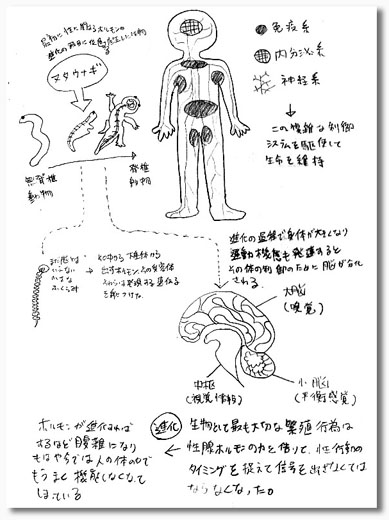 最初に性に関するホルモンは
進化の
ヌタウナギ
無脊椎
動物
脊椎
動物
免疫系
内分泌系
神経系
この複雑な制御
システムを駆使して
生命を維持
まだ脳とは
いえない
小さな
ふくらみ
進化の過程で身体が大きくなり
運動機能も発達すると
その体の制御のために脳が
される。
大脳
(嗅覚)
中脳
(視覚
小脳
(平衡感覚)
ホルモンが進化すれば
するほど複雑になり
もはや では人の体の中で
もうまく機能しなくなって
しまっている
進化
生物として最も大切な繁殖行為は
性腺ホルモンの力を借りて、性行動の
タイミングを捉えて信号を出さなくては
ならなくなった。